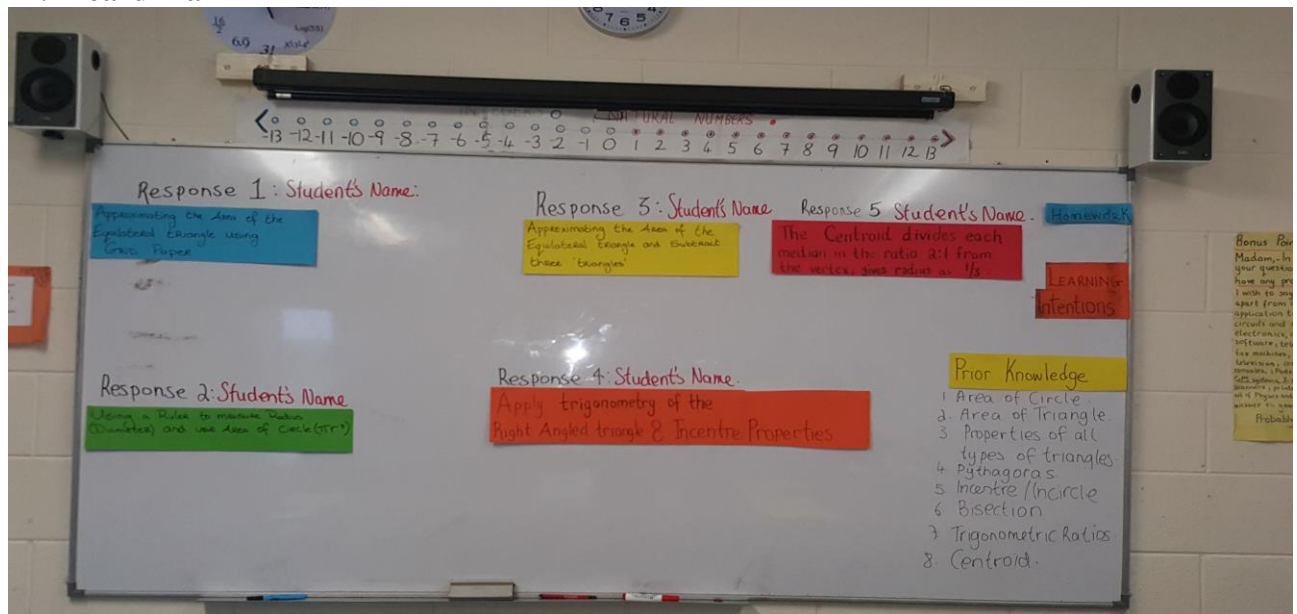 6.9
31
7 6 5
INTEGERS O NATURAL NUMBERS
-13 -12 -11 -10 -9 -8 -7 -6 -5 -4 -3 -2 -1 0 1 2 3 4 5 6 7 8 9 10 11 12 13
Response 1: Student's Name:
Approximating the Area of the
Equilateral triangle using
Grid Paper
Response 2: Student's Name
Using a Ruler to measure Radius
(Diameter) and use Area of Circle (πr²)
Response 3: Student's Name
Approximating the Area of the
Equilateral triangle and Subtract
three 'triangles'
Response 4: Student's Name.
Apply trigonometry of the
Right Angled triangle & Incentre Properties
Response 5 Student's Name.
The Centroid divides each
median in the ratio 2:1 from
the vertex, gives radius as 1/3.
Homework
LEARNING
Intentions
Prior Knowledge
1 Area of Circle.
2. Area of Triangle.
3 Properties of all
types of triangles.
4 Pythagoras.
5 Incentre/Incircle
6 Bisection
7 Trigonometric Ratios.
8. Centroid.
Bonus
Madam,- In
your
have any
I wish to say
apart from
application
circuits and
electronics,
software,
fax machines,
television,
Probably